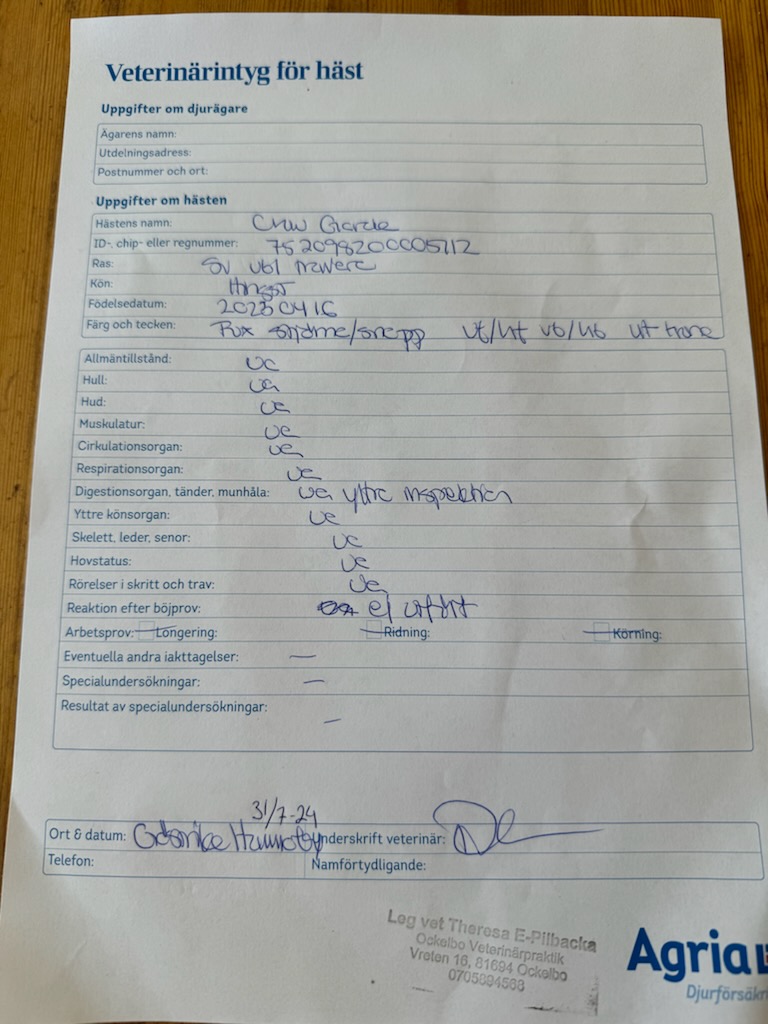 Veterinärintyg för häst
Uppgifter om djurägare
Ägarens namn:
Utdelningsadress:
Postnummer och ort:
Uppgifter om hästen
Hästens namn:
ID-, chip- eller regnummer: 752098200005112
Ras: Sv
Kön: Hingst
Födelsedatum: 20230416
Färg och tecken: Fux stjärna/snopp
Allmäntillstånd: ua
Hull: ua
Hud: ua
Muskulatur: ua
Cirkulationsorgan: ua
Respirationsorgan: ua
Digestionsorgan, tänder, munhåla: ua yttre inspektion
Yttre könsorgan: ua
Skelett, leder, senor: ua
Hovstatus: ua
Rörelser i skritt och trav: ua
Reaktion efter böjprov: ej utfört
Arbetsprov: Longering: Ridning: Körning:
Eventuella andra iakttagelser: —
Specialundersökningar: —
Resultat av specialundersökningar: —
31/7-24
Ort & datum: Underskrift veterinär:
Telefon: Namförtydligande:
Leg vet Theresa E-Pilbacka
Ockelbo Veterinärpraktik
Vreten 16, 81694 Ockelbo
Agria
Djurförsäkr